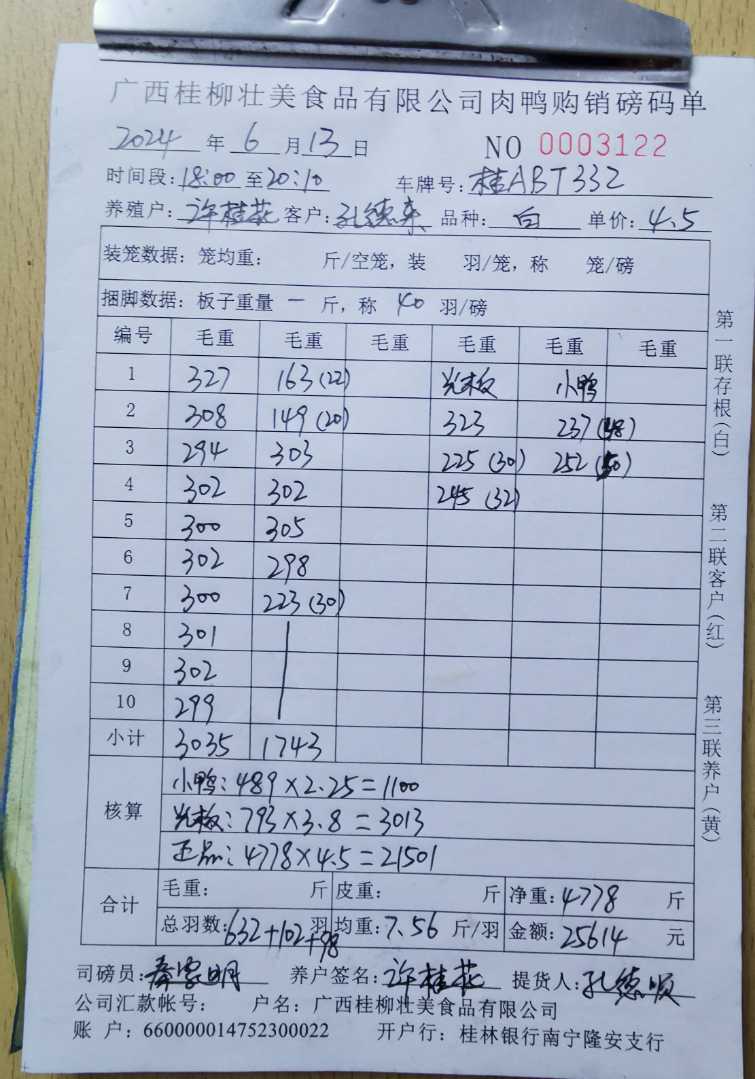 广西桂柳壮美食品有限公司肉鸭购销磅码单
2024年6月13日 NO 0003122
时间段:18:00至20:10 车牌号:桂ABT332
养殖户:许桂花 客户:孔德来 品种:白 单价:4.5
装笼数据:笼均重: 斤/空笼,装 羽/笼,称 笼/磅
捆脚数据:板子重量 一 斤,称 40 羽/磅
编号 毛重 毛重 毛重 毛重 毛重 毛重
1 327 163(22) 光板 小鸭
2 308 149(20) 323 237(48)
3 294 303 225(30) 252(50)
4 302 302 245(32)
5 300 305
6 302 298
7 300 223(30)
8 301
9 302
10 299
小计 3035 1743
核算
小鸭:489×2.25=1100
光板:793×3.8=3013
正品:4778×4.5=21501
合计
毛重: 斤 皮重: 斤 净重:4778 斤
总羽数:632+102+98 羽 均重:7.56 斤/羽 金额:25614 元
司磅员: 养户签名:许桂花 提货人:孔德顺
公司汇款帐号: 户名:广西桂柳壮美食品有限公司
账 户:660000014752300022 开户行:桂林银行南宁隆安支行
第一联存根(白)
第二联客户(红)
第三联养户(黄)